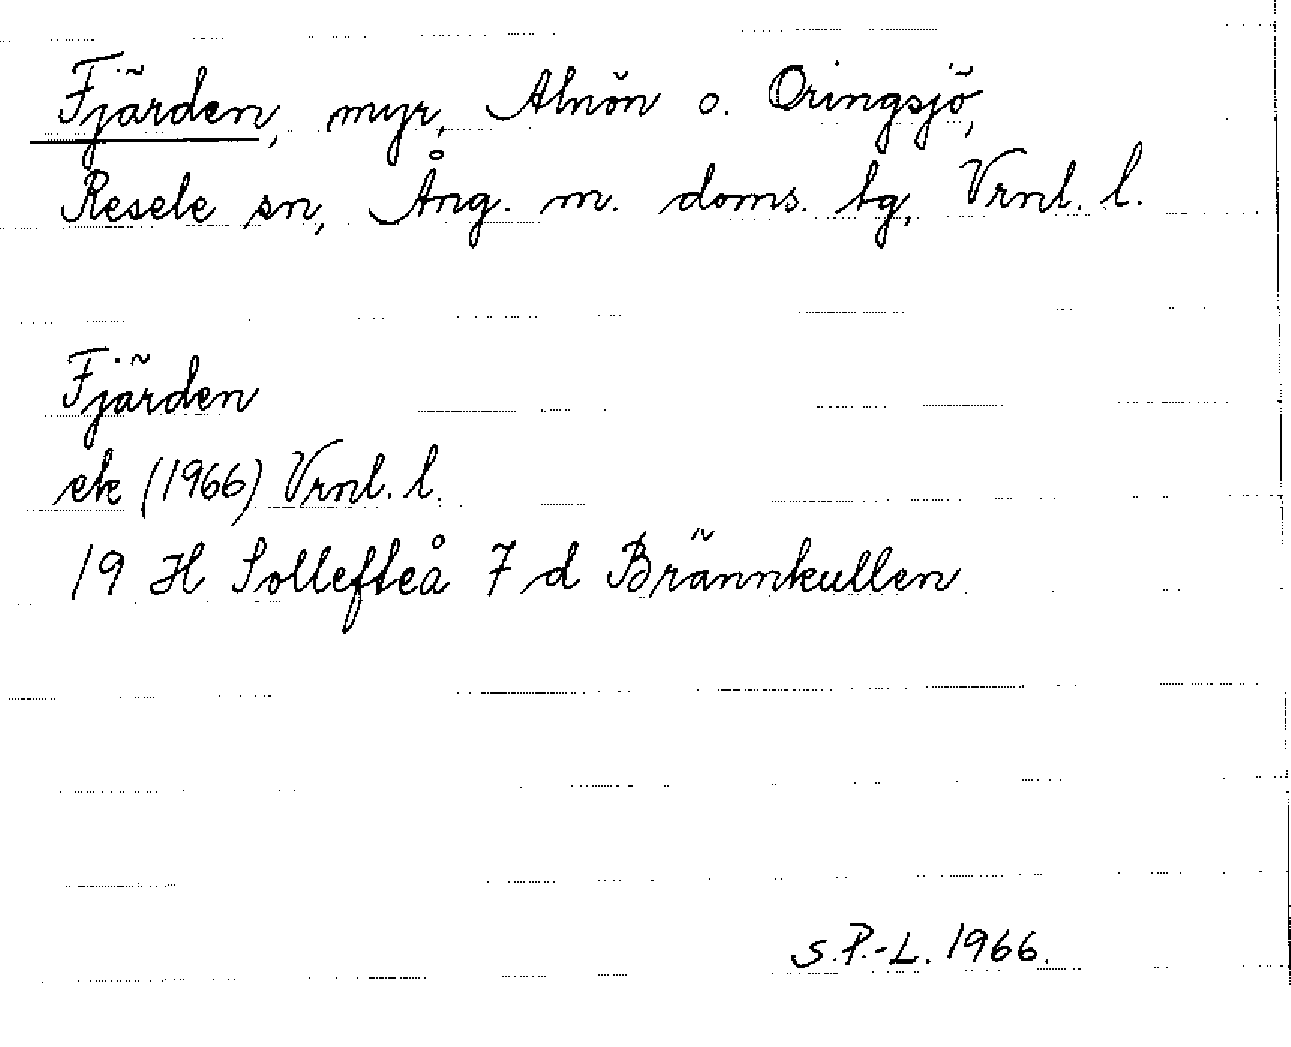 Fjärden, myr, Alnön o. Oringsjö,
Resele sn, Ång. m. doms. tg, Vrnl. l.
Fjärden
ek (1966) Vrnl. l.
19 H Sollefteå 7 d Brännkullen
S.P.-L. 1966.